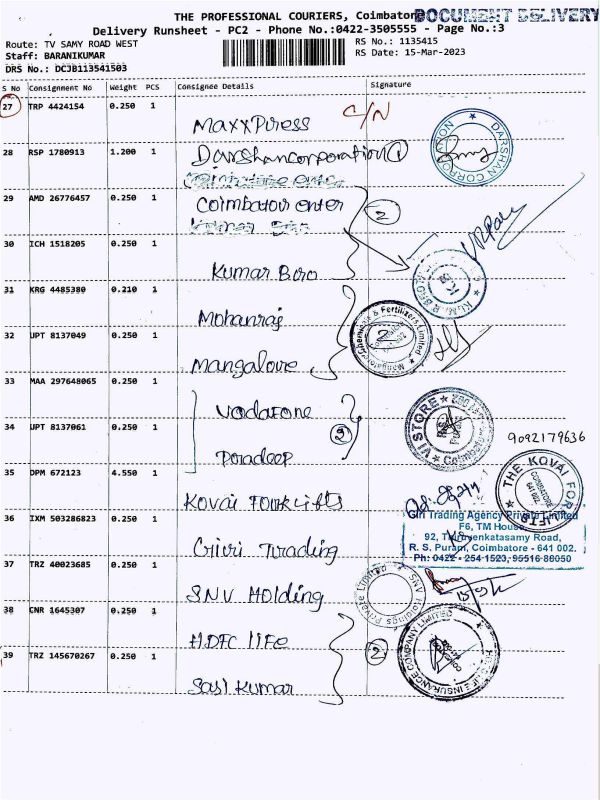 THE PROFESSIONAL COURIERS, Coimbatore
DOCUMENT DELIVERY
Delivery Runsheet - PC2 - Phone No.:0422-3505555 - Page No.:3
Route: TV SAMY ROAD WEST
RS No.: 1135415
Staff: BARANIKUMAR
RS Date: 15-Mar-2023
DRS No.: DCJB113541503
S No Consignment No Weight PCS Consignee Details Signature
27 TRP 4424154 0.250 1
MaxxPress C/N
DARSHAN CORPORATION
28 RSP 1780913 1.200 1
Darshancorporation 1
29 AMD 26776457 0.250 1
Coimbatour enter 2
30 ICH 1518205 0.250 1
Kumar Bro
31 KRG 4485380 0.210 1
Mohanraj
Mangalore Chemicals & Fertilizers Limited
2
32 UPT 8137049 0.250 1
Mangalore
33 MAA 297648065 0.250 1
Vodafone
VI STORE
34 UPT 8137061 0.250 1
2
9092179636
Pradeep
35 DPM 672123 4.550 1
THE KOVAI FORK LIFTS
COIMBATORE
641 002
Kovai Fourklifts
36 IXM 503286823 0.250 1
Giri Trading Agency Private Limited
F6, TM House
92, Thiruvenkatasamy Road,
R. S. Puram, Coimbatore - 641 002.
Ph: 0422 - 254 1523, 95516 86050
Giri Trading
37 TRZ 40023685 0.250 1
SNV Holdings Private Limited
SNV Holding
38 CNR 1645307 0.250 1
HDFC life
LIFE INSURANCE COMPANY LIMITED
39 TRZ 145670267 0.250 1
2
Sasi kumar